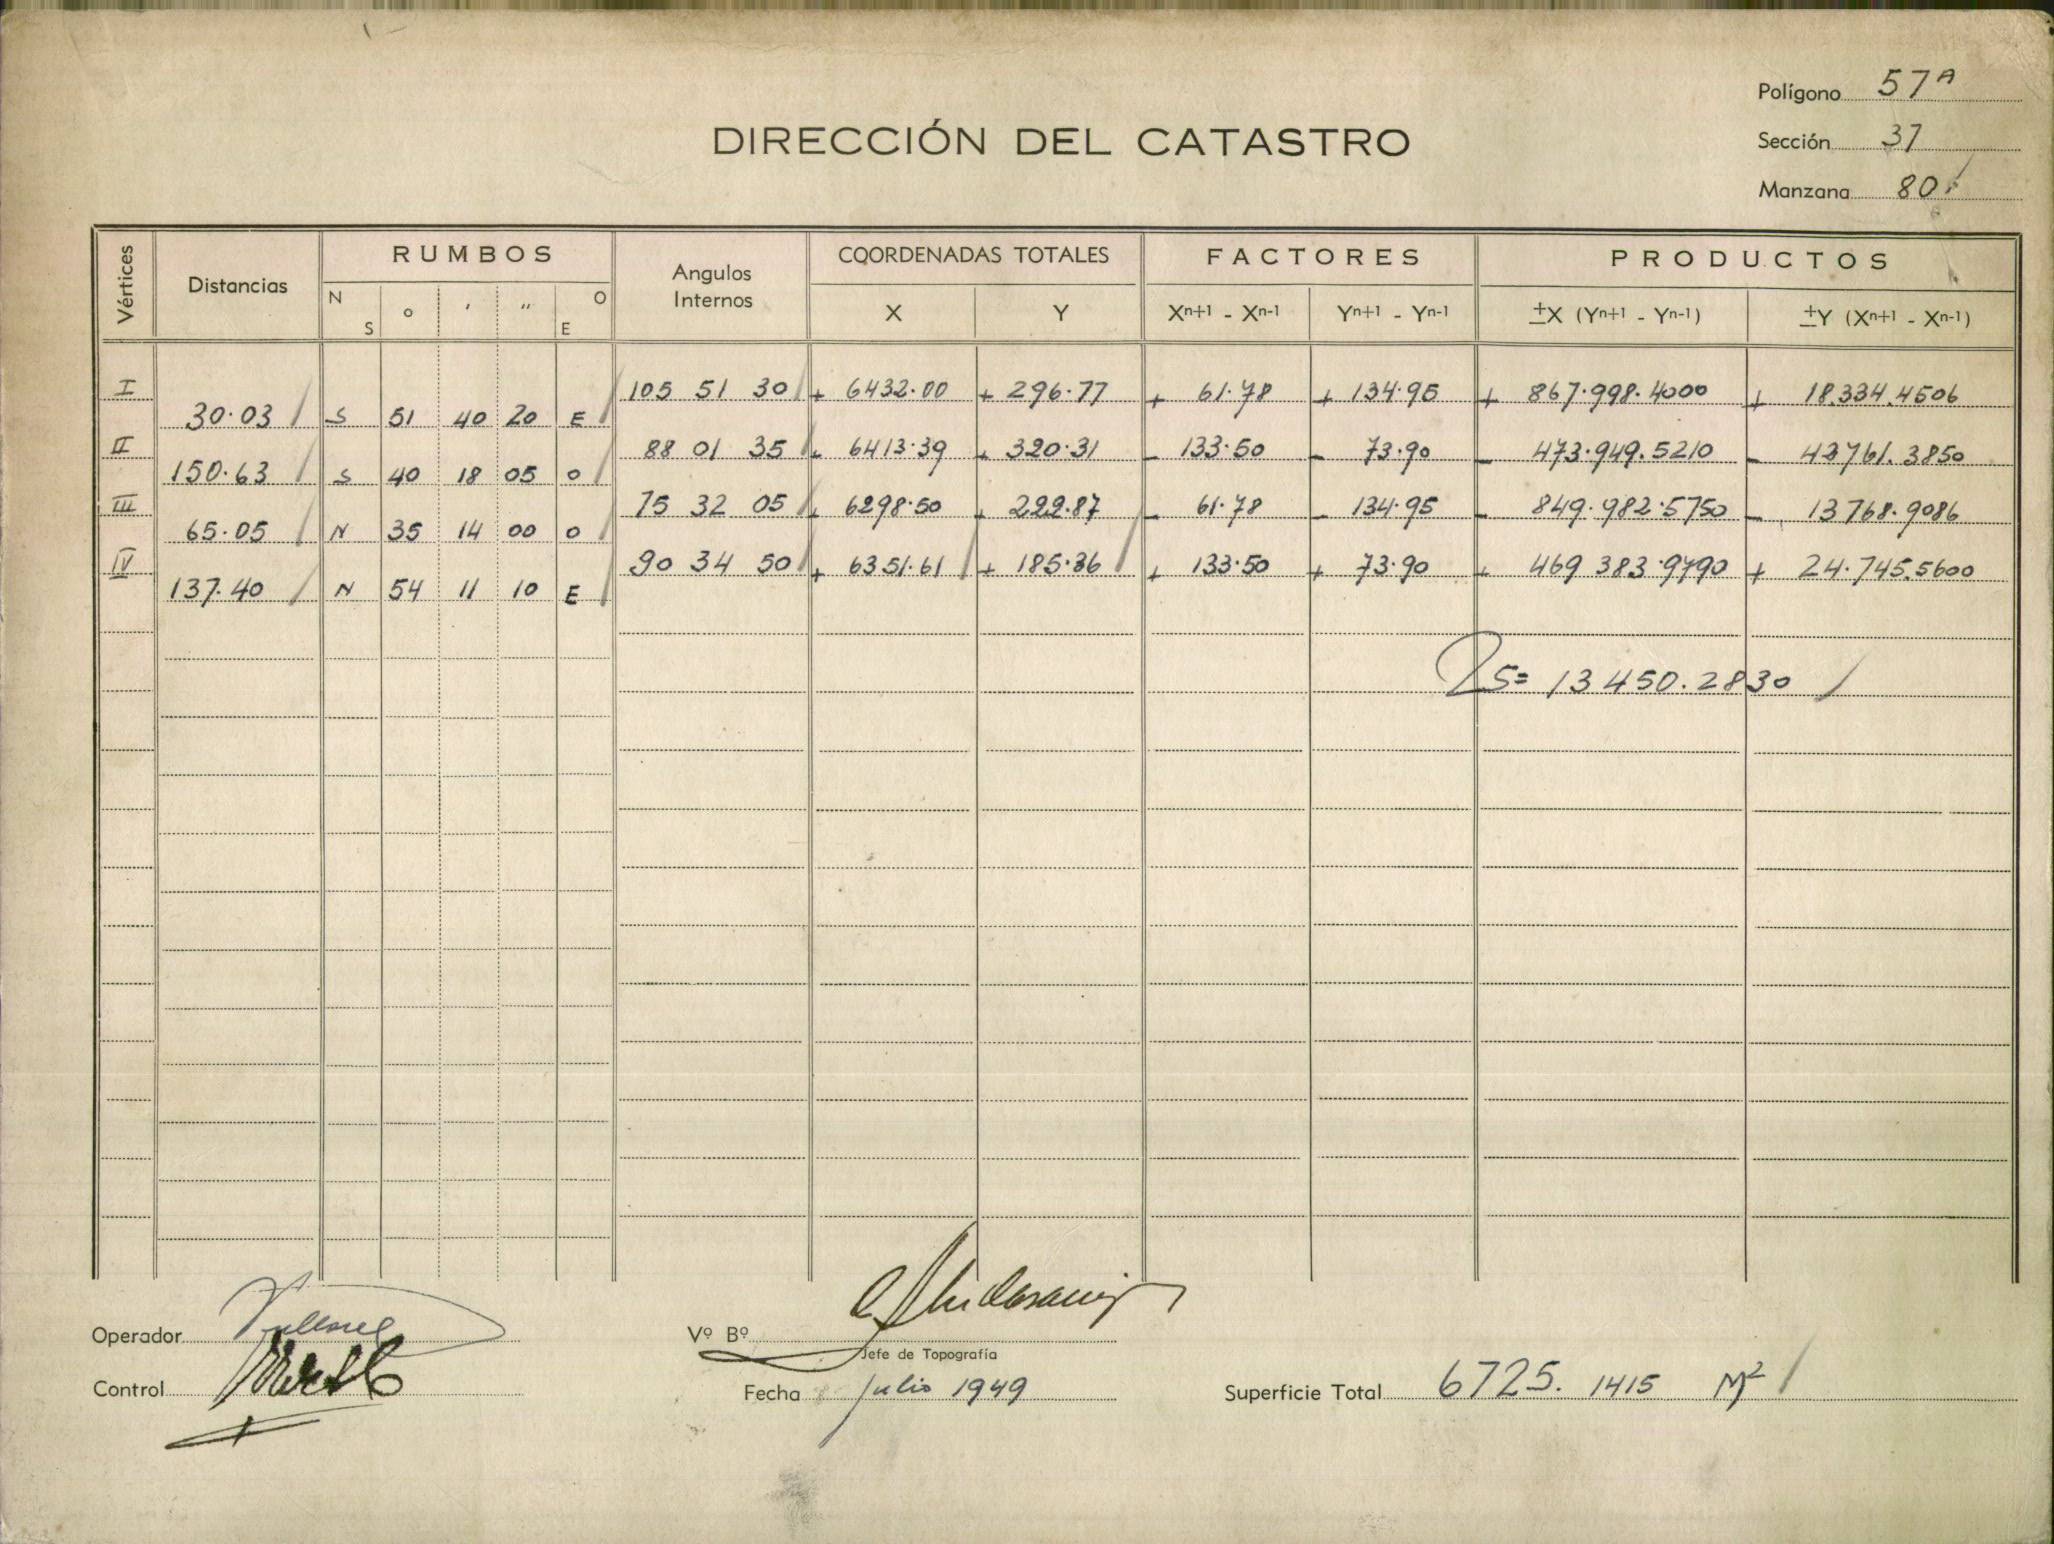 Polígono 57A
DIRECCIÓN DEL CATASTRO
Sección 37
Manzana 80
Vértices Distancias RUMBOS Angulos Internos COORDENADAS TOTALES FACTORES PRODUCTOS
N S ° ' " O E X Y Xn+1 - Xn-1 Yn+1 - Yn-1 ±X (Yn+1 - Yn-1) ±Y (Xn+1 - Xn-1)
I 105 51 30 + 6432.00 + 296.77 + 61.78 + 134.95 + 867.998.4000 + 18.334.4506
30.03 S 51 40 20 E
II 88 01 35 + 6413.39 + 320.31 - 133.50 - 73.90 - 473.949.5210 - 42761.3850
150.63 S 40 18 05 O
III 75 32 05 + 6298.50 + 222.87 - 61.78 - 134.95 - 849.982.5750 - 13768.9086
65.05 N 35 14 00 O
IV 90 34 50 + 6351.61 + 185.36 + 133.50 + 73.90 + 469 383.9790 + 24.745.5600
137.40 N 54 11 10 E
2S= 13450.2830
Operador
Vº Bº
Jefe de Topografía
Control
Fecha Julio 1949
Superficie Total 6725.1415 M²